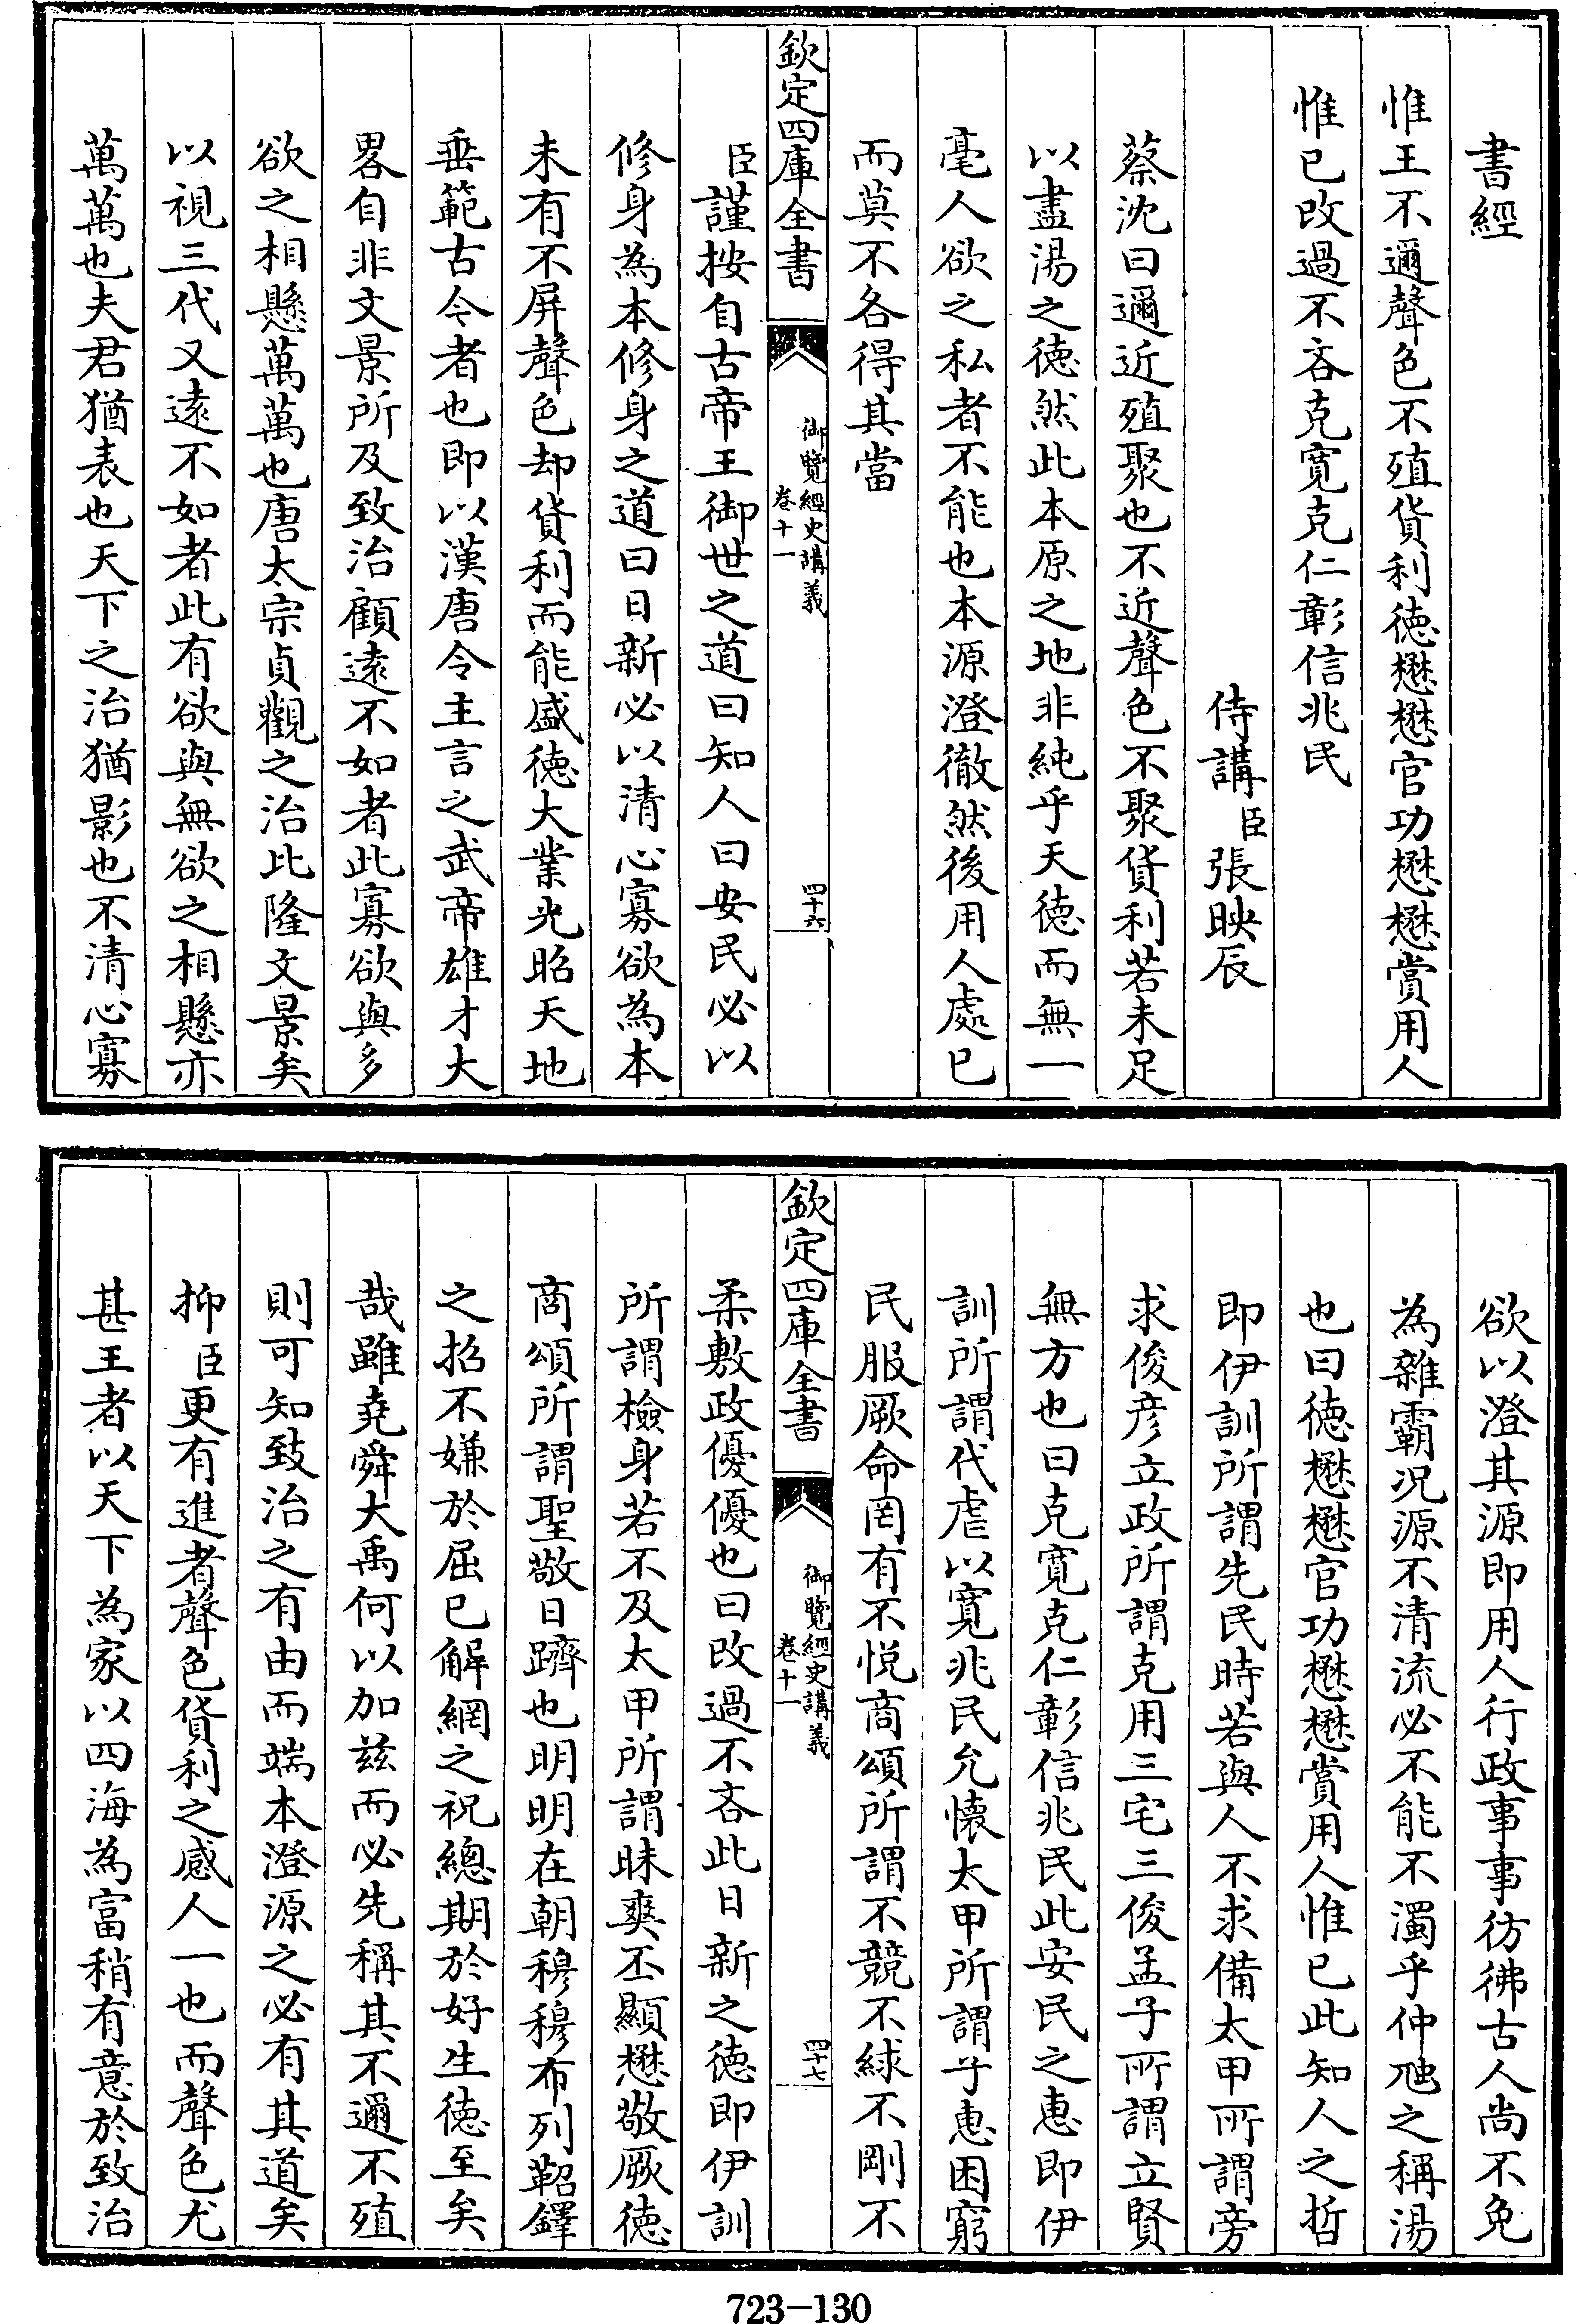 書經
惟王不邇聲色不殖貨利徳懋懋官功懋懋賞用人
惟已改過不吝克寛克仁彰信兆民
侍講臣張映辰
蔡沈曰邇近殖聚也不近聲色不聚貨利若未足
以盡湯之徳然此本原之地非純乎天徳而無一
毫人欲之私者不能也本源澄徹然後用人處已
而莫不各得其當
欽定四庫全書
御覽經史講義
卷十一
四十六
臣謹按自古帝王御世之道曰知人曰安民必以
修身為本修身之道曰日新必以清心寡欲為本
未有不屏聲色却貨利而能盛徳大業光昭天地
垂範古今者也即以漢唐令主言之武帝雄才大
畧自非文景所及致治顧遠不如者此寡欲與多
欲之相懸萬萬也唐太宗貞觀之治比隆文景矣
以視三代又遠不如者此有欲與無欲之相懸亦
萬萬也夫君猶表也天下之治猶影也不清心寡
欲以澄其源即用人行政事事彷彿古人尚不免
為雜霸况源不清流必不能不濁乎仲虺之稱湯
也曰徳懋懋官功懋懋賞用人惟已此知人之哲
即伊訓所謂先民時若與人不求備太甲所謂旁
求俊彦立政所謂克用三宅三俊孟子所謂立賢
無方也曰克寛克仁彰信兆民此安民之惠即伊
訓所謂代虐以寛兆民允懷太甲所謂子惠困窮
民服厥命罔有不悦商頌所謂不競不絿不剛不
欽定四庫全書
御覽經史講義
卷十一
四十七
柔敷政優優也曰改過不吝此日新之徳即伊訓
所謂檢身若不及太甲所謂昧爽丕顯懋敬厥徳
商頌所謂聖敬日躋也明明在朝穆穆布列鞀鐸
之招不嫌於屈已解網之祝總期於好生徳至矣
哉雖堯舜大禹何以加兹而必先稱其不邇不殖
則可知致治之有由而端本澄源之必有其道矣
抑臣更有進者聲色貨利之惑人一也而聲色尤
甚王者以天下為家以四海為富稍有意於致治
723—130